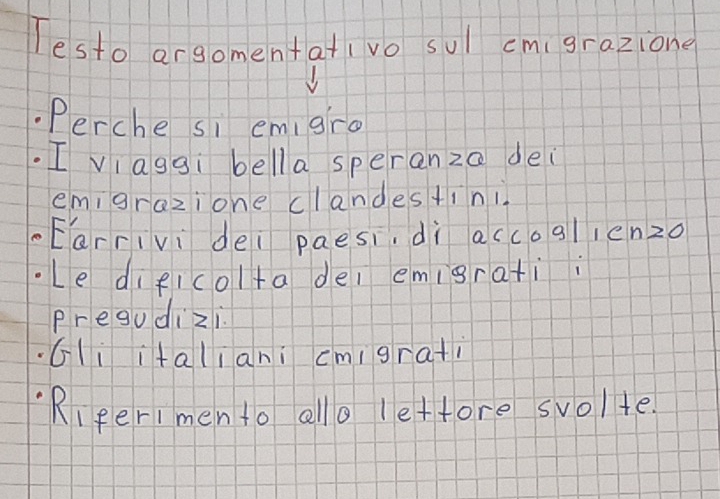 Testo argomentativo sul emigrazione
• Perche si emigro
• I viaggi bella speranza dei
emigrazione clandestini.
• E'arrivi dei paesi. di accoglienzo
• Le dificolta dei emigrati i
pregudizi.
• Gli italiani emigrati
• Riferimento allo lettore svolte.